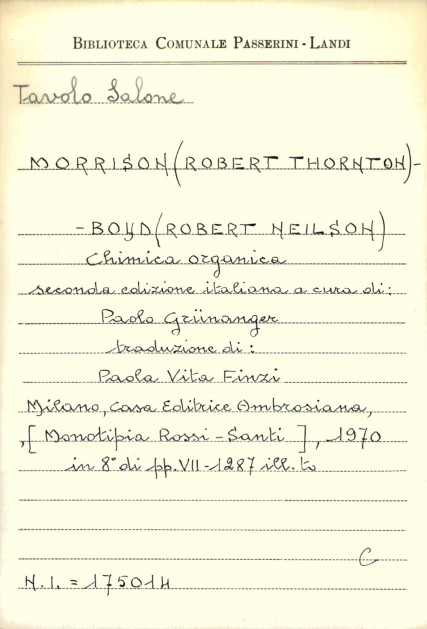 BIBLIOTECA COMUNALE PASSERINI - LANDI
Tavolo Salone
MORRISON (ROBERT THORNTON) -
- BOYD (ROBERT NEILSON)
Chimica organica
seconda edizione italiana a cura di:
Paolo Grünanger
traduzione di:
Paola Vita Finzi
Milano, Casa Editrice Ambrosiana,
,[ Monotipia Rossi - Santi ], 1970
in 8° di pp. VII - 1287 ill. to
C
N.I. = 175014